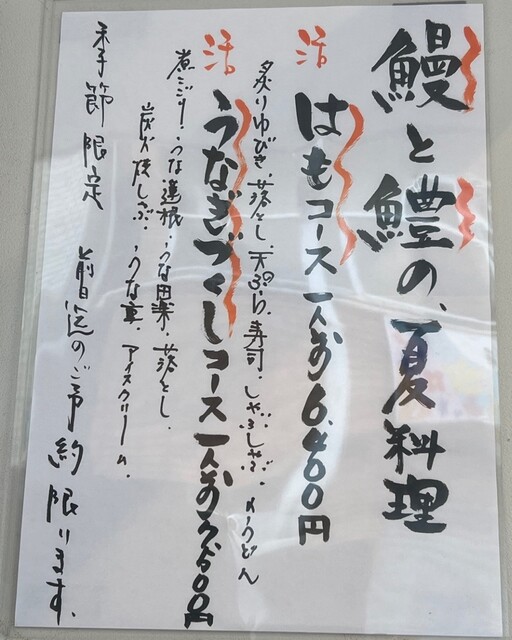 鰻と鱧の、夏料理
活 はもコース 一人前6,400円
炙りゆびき、落とし、天ぷら、寿司、しゃぶしゃぶ、うどん
活 うなぎづくしコース 一人前7,600円
煮こごり・うな蓮根・うな田楽・落とし、
炭火焼しゃぶ、うな重、アイスクリーム、
季節限定 前日迄のご予約限ります、